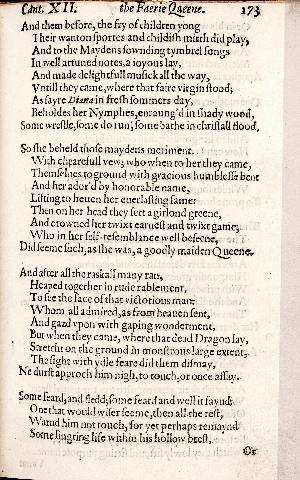 Cant. XII. the Faerie Queene. 173
And them before, the fry of children yong
Their wanton sportes and childish mirth did play,
And to the Maydens sownding tymbrels song
In well attuned notes, a ioyous lay,
And made delightfull musick all the way,
Vntill they came, where that faire virgin stood;
As fayre Diana in fresh sommers day,
Beholdes her Nymphes, enraung'd in shady wood,
Some wrestle, some do run, some bathe in christall flood,
So she beheld those maydens meriment
With chearefull vew; who when to her they came,
Themselues to ground with gracious humblesse bent
And her ador'd by honorable name,
Lifting to heuen her euerlasting fame:
Then on her head they sett a girlond greene,
And crowned her twixt earnest and twixt game;
Who in her self-resemblance well beseene,
Did seeme such, as she was, a goodly maiden Queene.
And after all the raskall many ran,
Heaped together in rude rablement,
To see the face of that victorious man:
Whom all admired, as from heauen sent,
And gazd vpon with gaping wonderment,
But when they came, where that dead Dragon lay,
Stretcht on the ground in monstrous large extent,
The sight with ydle feare did them dismay,
Ne durst approch him nigh, to touch, or once assay.
Some feard, and fledd; some feard and well it faynd;
One that would wiser seeme, then all the rest,
Warnd him not touch, for yet perhaps remaynd
Some lingring life within his hollow brest,
Or